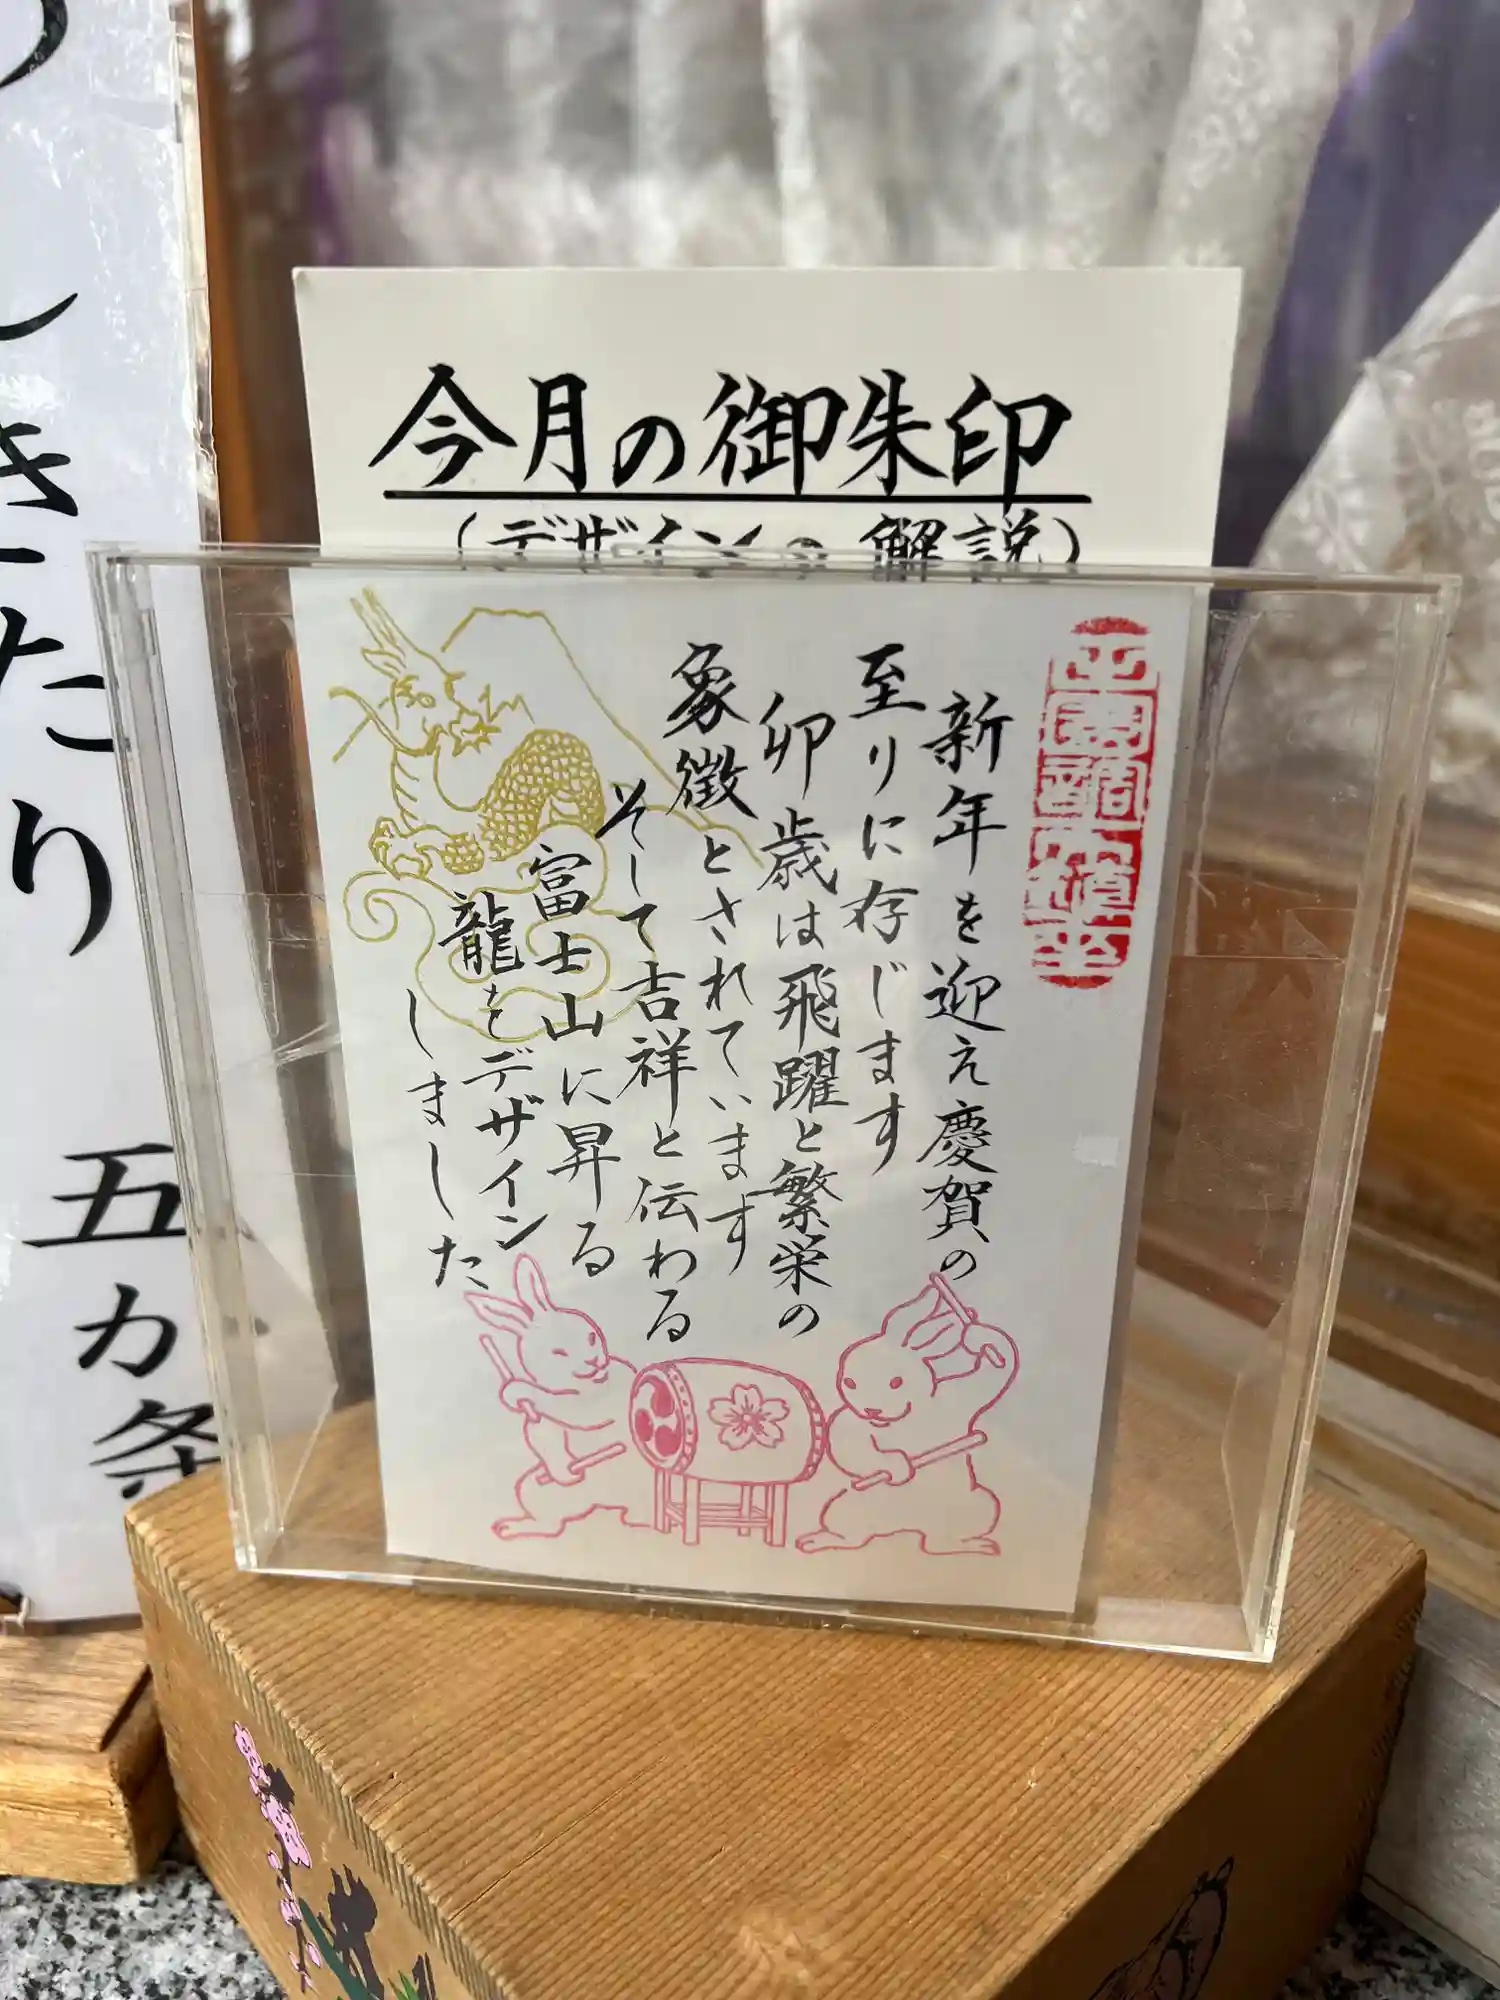 今月の御朱印
(デザインの解説)
新年を迎え慶賀の
至りに存じます
卯歳は飛躍と繁栄の
象徴とされています
そして吉祥と伝わる
富士山に昇る
龍をデザイン
しました
しきたり 五カ条